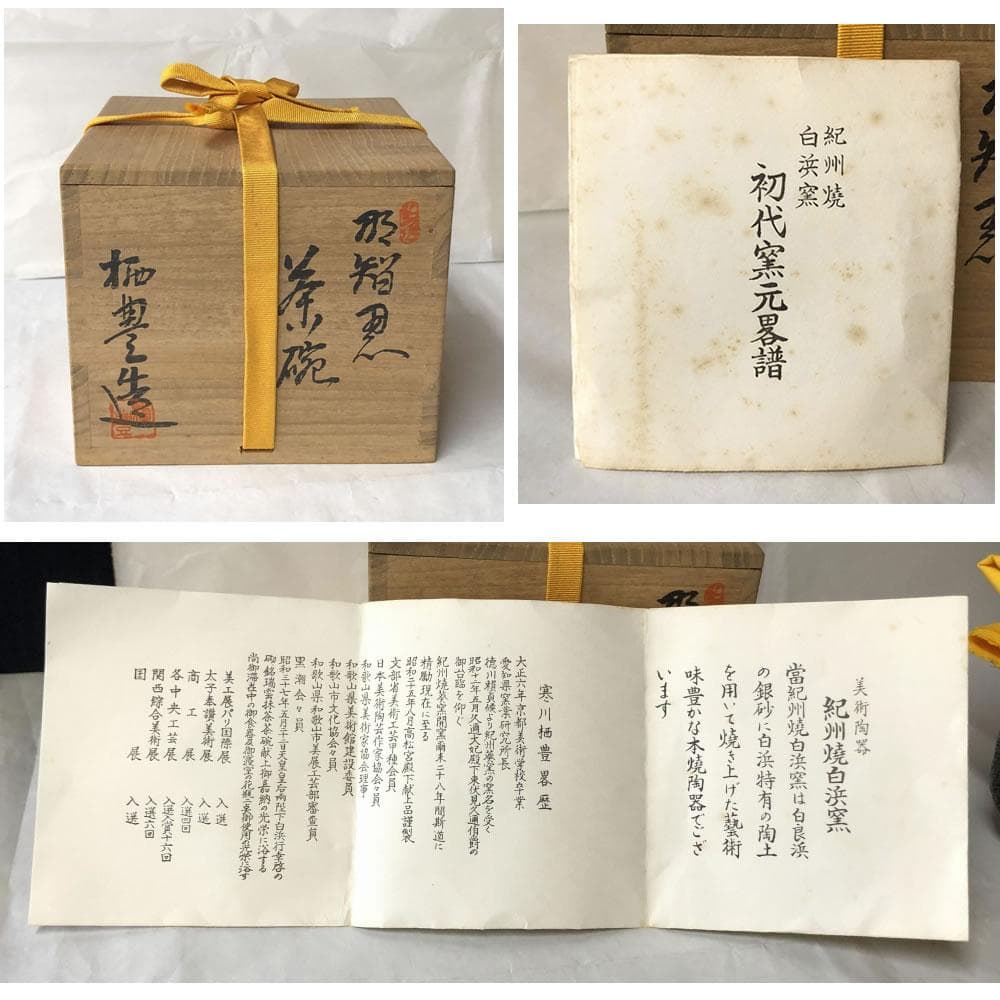 那智黒
茶碗
栖豊造
紀州燒
白浜窯
初代窯元畧譜
美術陶器
紀州燒白浜窯
當紀州燒白浜窯は白良浜
の銀砂に白浜特有の陶土
を用いて焼き上げた藝術
味豊かな本焼陶器でござ
います
寒川栖豊畧歴
大正六年京都美術学校卒業
愛知県窯業研究所長
徳川頼貞候より紀州葵窯の窯名を受く
昭和十二年五月久邇大妃殿下東伏見久邇伯爵の
御台臨を仰ぐ
紀州焼葵窯開窯爾来二十八年間斯道に
精勵現在に至る
昭和二十五年八月高松宮殿下献上品謹製
文部省美術工芸甲種会員
日本美術陶芸作家協会々員
和歌山県美術家協会理事
和歌山県美術館建設委員
和歌山市文化協会々員
和歌山県和歌山市美展工芸部審査員
黒潮会々員
昭和三十七年五月二十二日天皇皇后両陛下白浜行幸啓の
砌銘瑞雲抹茶茶碗献上御嘉納の光栄に浴する
尚御滞在中の御食器及御寝室の花瓶二点御使用の光栄に浴す
美工展パリ国際展 入選
太子奉讃美術展 入選
商工展 入選四回
各中央工芸展 入選入賞十六回
関西綜合美術展 入選六回
国展 入選
那